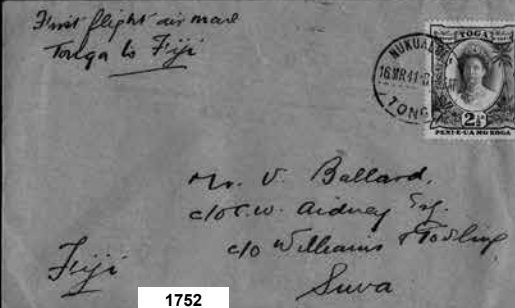 First flight air mail
Tonga to Fiji
NUKUALOFA
16 MR 41
TONGA
TOGA
2½
PENI-E-UA MO-E-ROGA
Mr. V. Ballard,
c/o C.W. Aidney Esq.
c/o Williams & Gosling
Suva
Fiji
1752